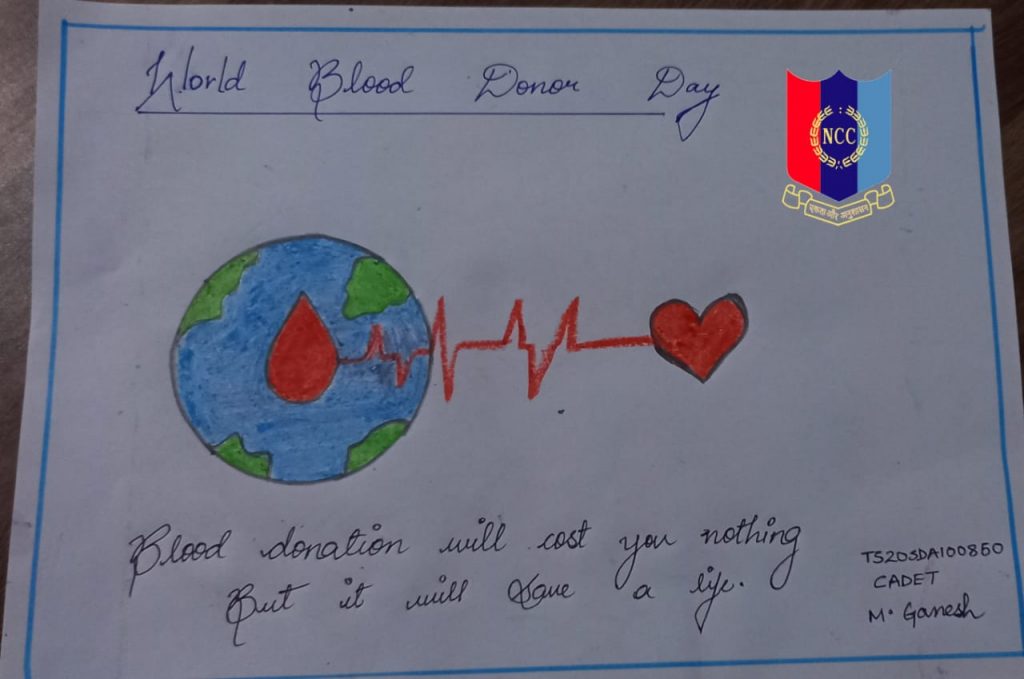 World Blood Donor Day
NCC
एकता और अनुशासन
Blood donation will cost you nothing
But it will Save a life.
TS20SDA100850
CADET
M. Ganesh